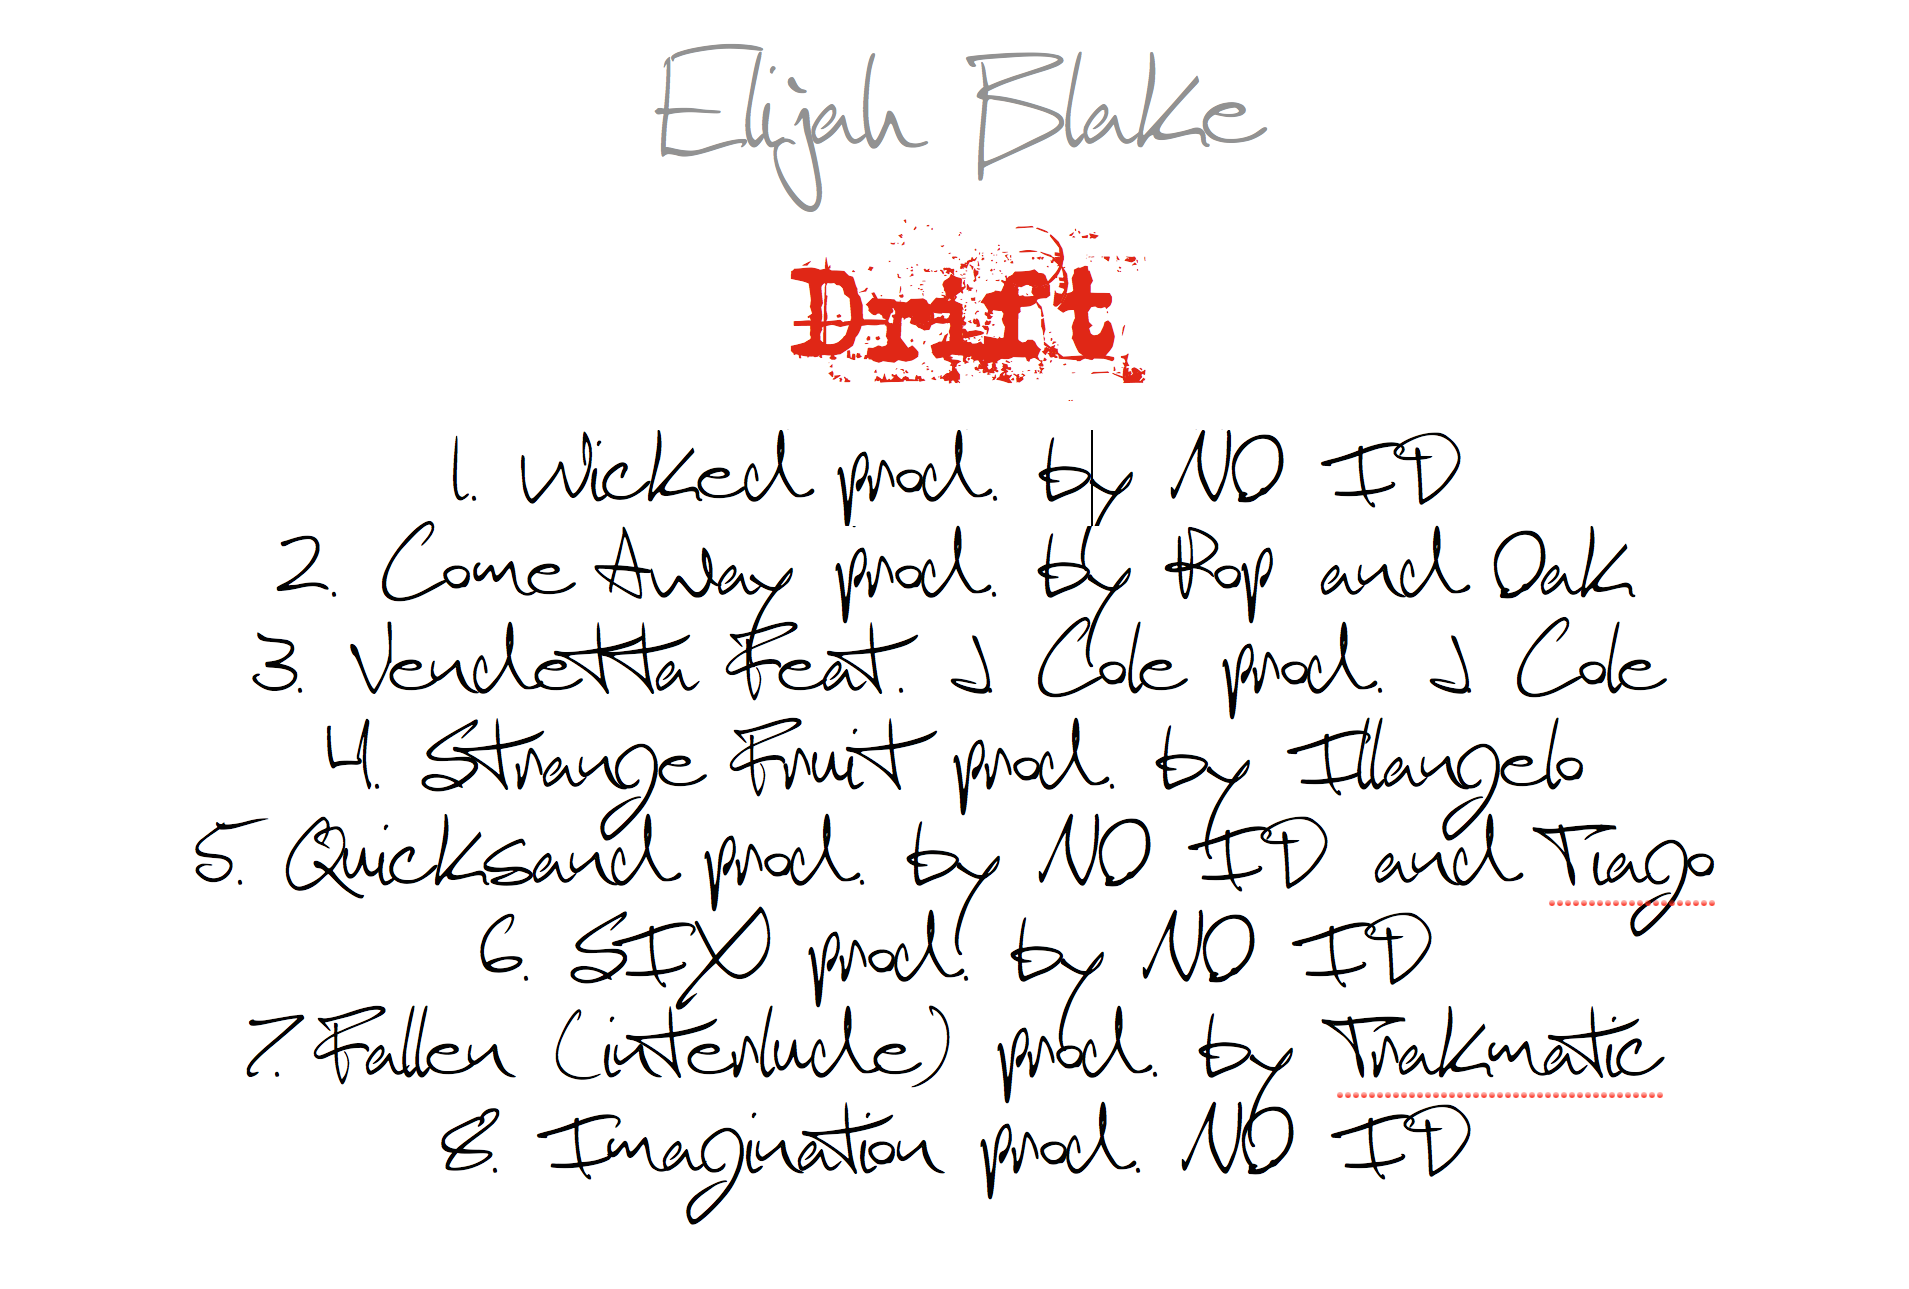 Elijah Blake
Drift
1. Wicked prod. by NO ID
2. Come Away prod. by Rop and Oak
3. Vendetta Feat. J Cole prod. J Cole
4. Strange Fruit prod. by Illangelo
5. Quicksand prod. by NO ID and Tiago
6. SIX prod. by NO ID
7. Fallen (interlude) prod. by Trakmatic
8. Imagination prod. NO ID